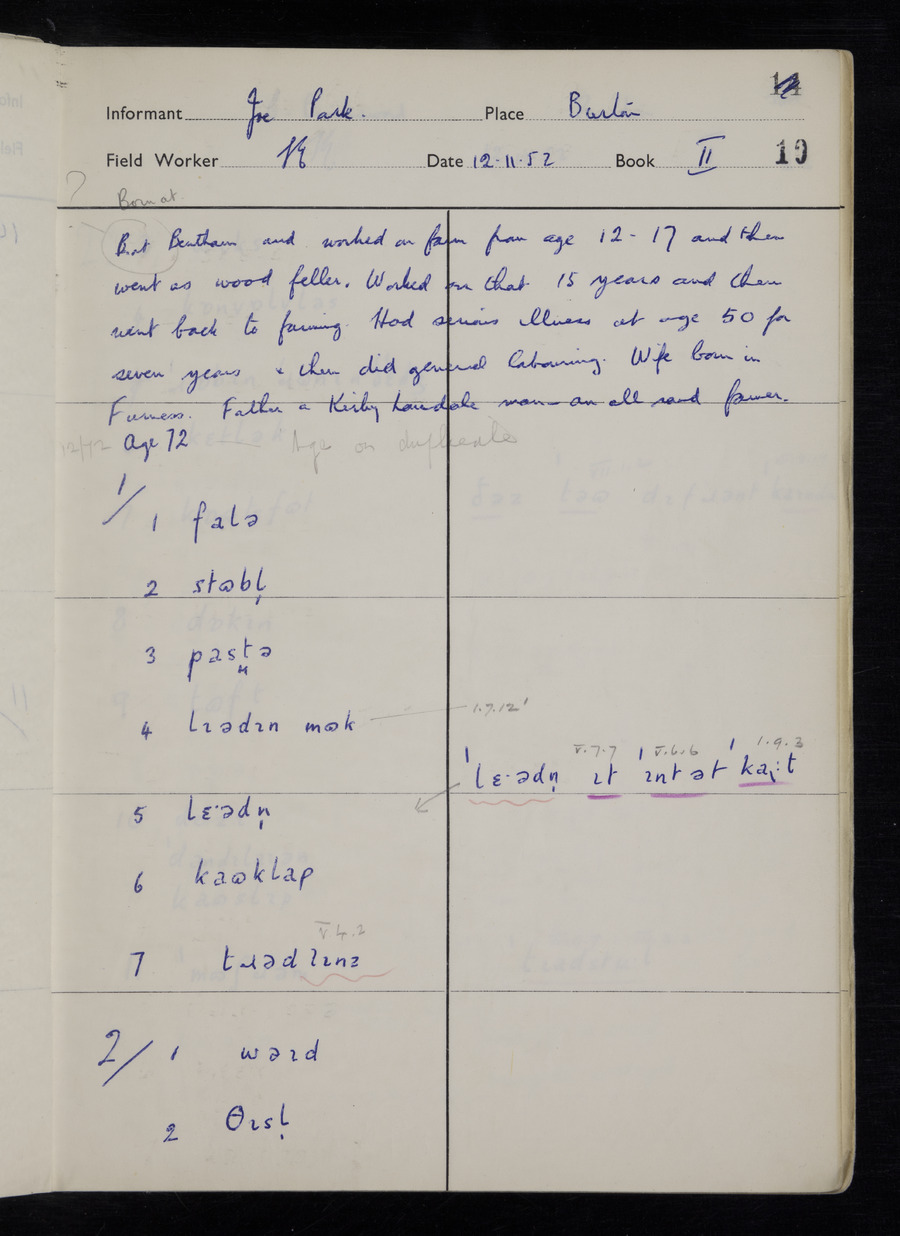 14
Informant Joe Park. Place Burton
Field Worker Date 12·11·52 Book II 10
? Born at.
B. at Bentham and worked on farm from age 12-17 and then
went as wood feller. Worked on that 15 years and then
went back to farming. Had serious illness at age 50 for
seven years & then did general labouring. Wife born in
Furness. Father a Kirby Lonsdale man — an all round farmer.
Age 72 Age on duplicate
1/ 1 falə
2 stɷbl̩
3 pastə
4 lɪədɪn mɷk 1.7.12'
V.7.7 V.6.6 1.9.3
ˈlɛ·ədn̩ ɪt ˈɪnt ət ˈkaɪ:t
5 lɛ·ədn̩
6 kaɷklap
V 4.2
7 tɹədlɪnz
2/ 1 wəɪd
2 θɪsl̩